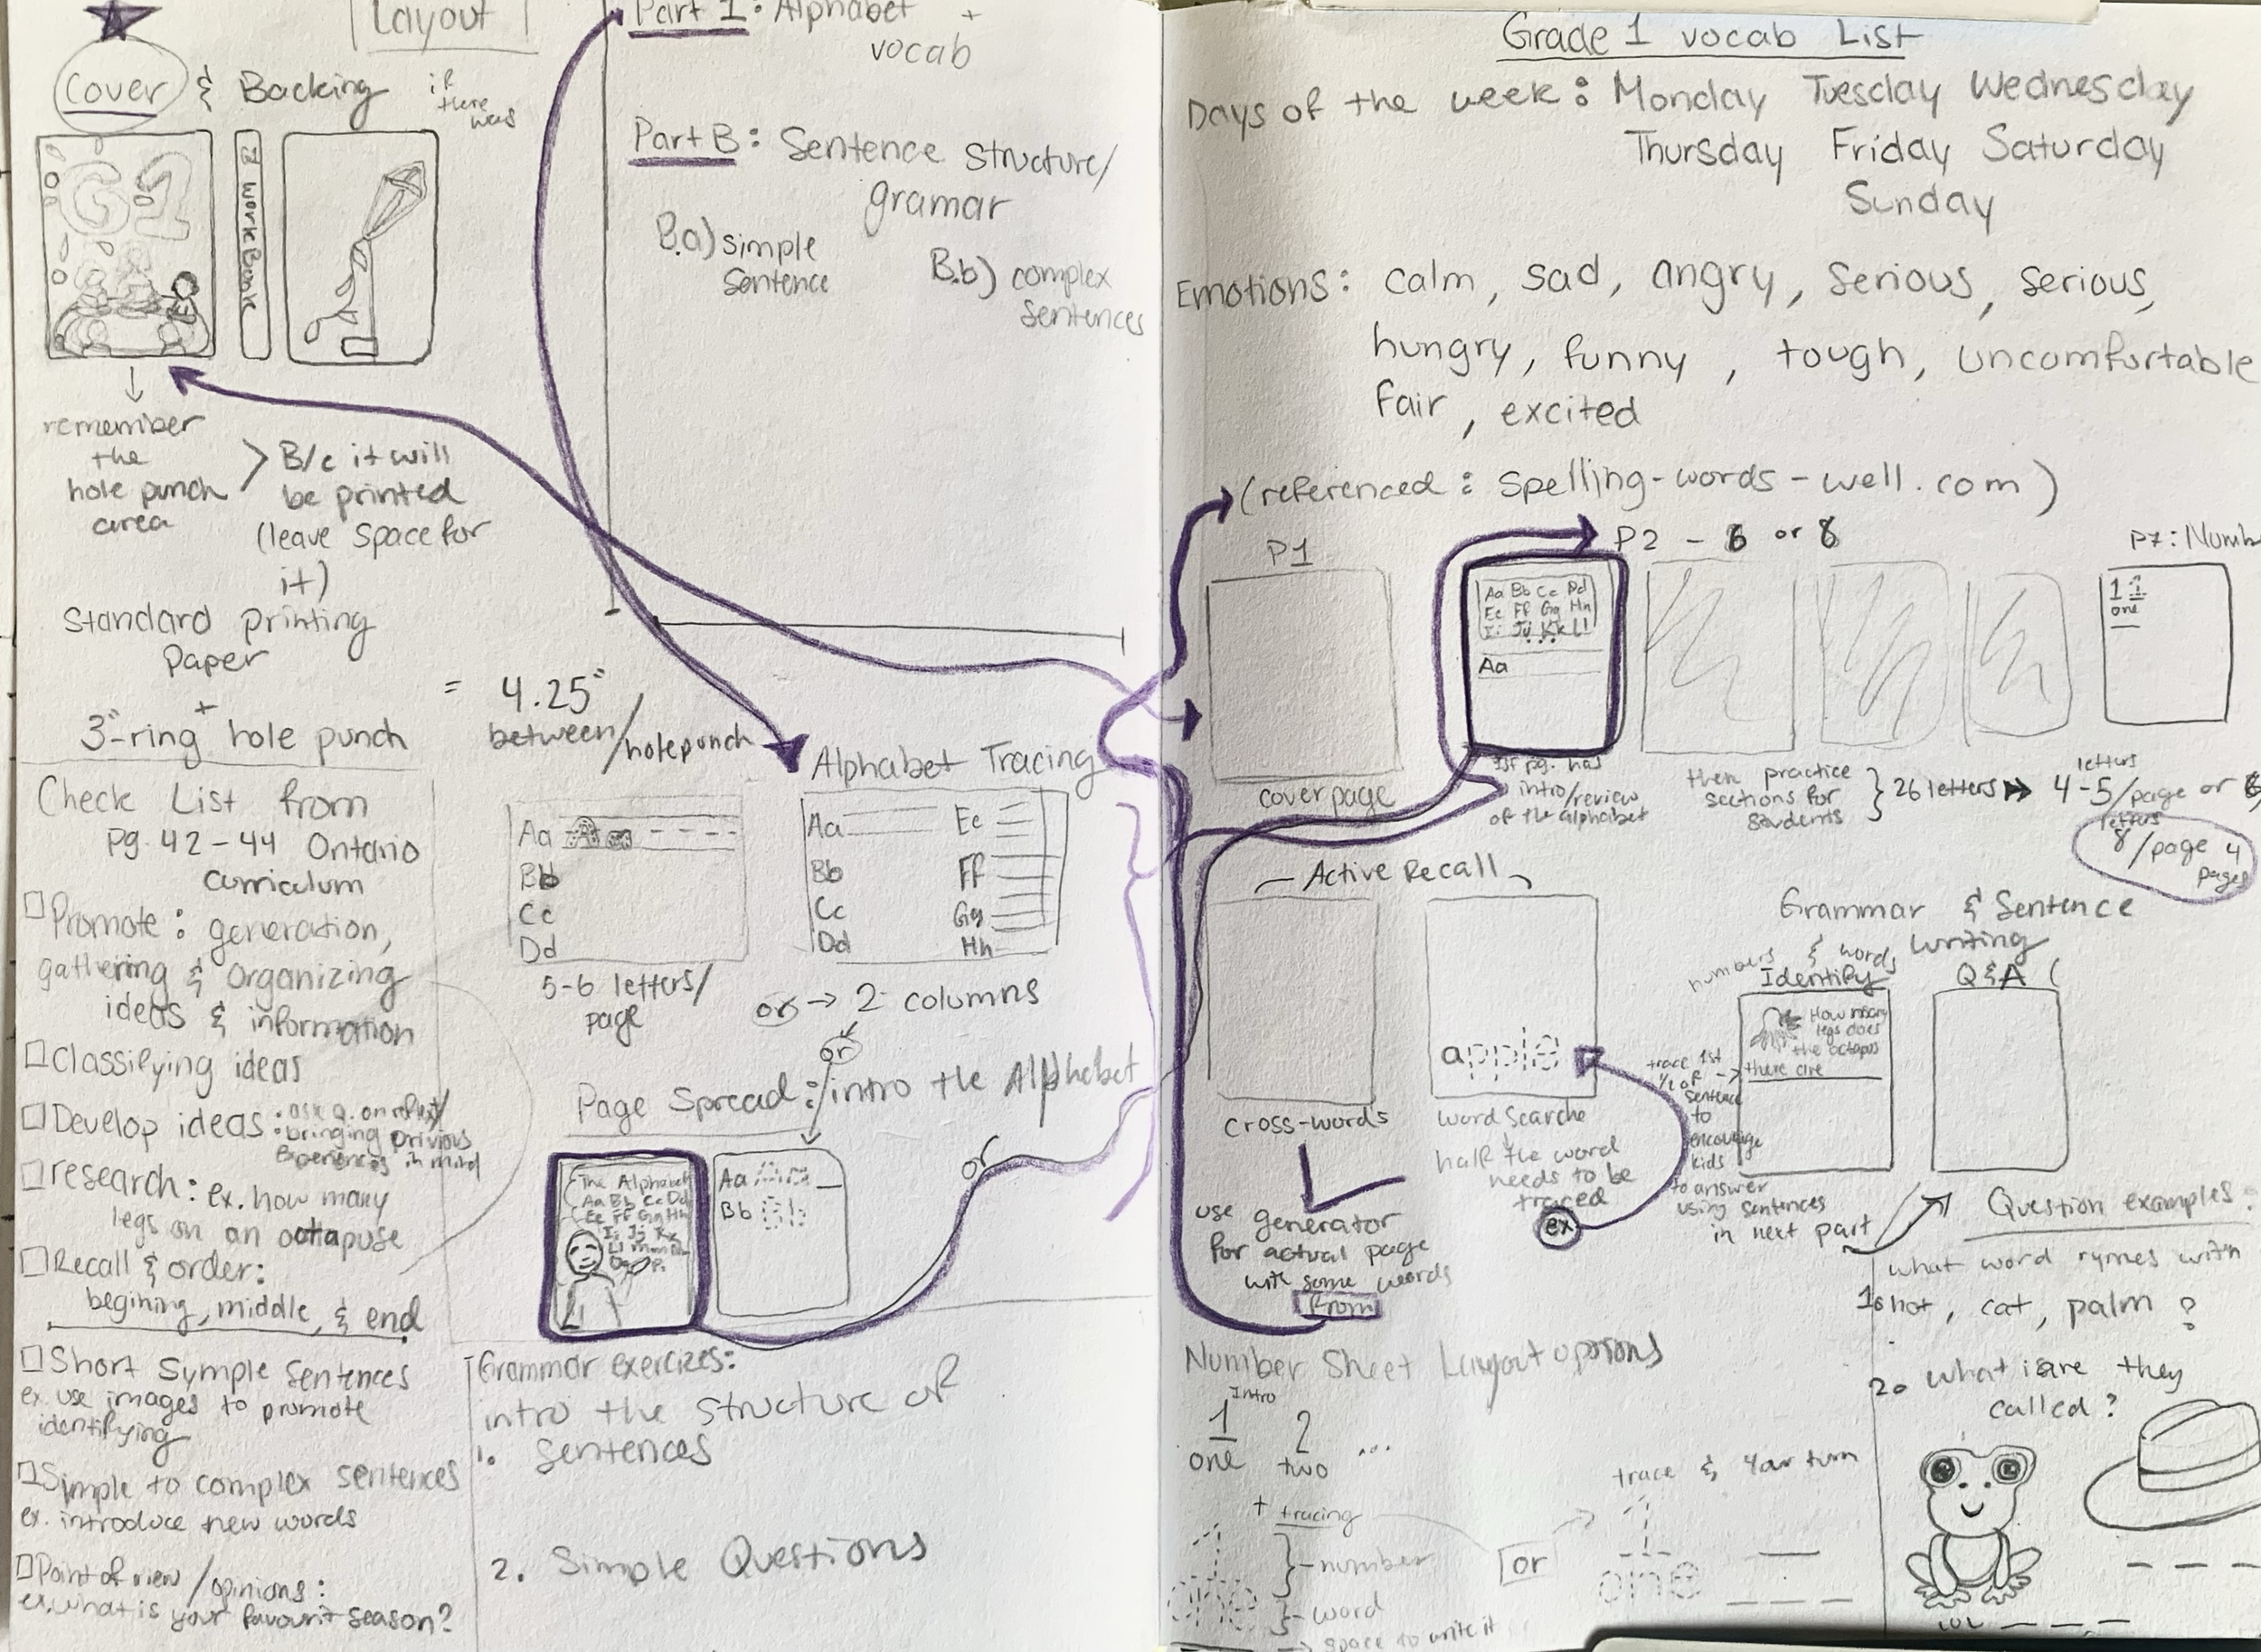 Layout
Cover & Backing if
there
was
G1
WorkBook
remember
the
hole punch
area
B/c it will
be printed
(leave space for
it)
Standard printing
paper
+
3"-ring hole punch
= 4.25"
between/holepunch
Check List from
pg. 42-44 Ontario
curriculum
Promote: generation,
gathering & organizing
ideas & information
Classifying ideas
Develop ideas: • ask q. on reflect/
• bringing privious
experiences in mind
research: ex. how many
legs on an octapuse
Recall & order:
begining, middle, & end
Short Symple Sentences
ex. use images to promote
identifying
Simple to complex sentences
ex. introduce new words
Point of view/opinions:
ex. what is your favourit season?
Part 1: Alphabet +
vocab
Part B: Sentence structure/
gramar
B.a) simple
sentence
B.b) complex
sentences
Alphabet Tracing
Aa
Bb
Cc
Dd
5-6 letters/
page
Aa Ee
Bb Ff
Cc Gg
Dd Hh
or → 2 columns
or
Page Spread: intro the Alphabet
The Alphabet
Aa Bb Cc Dd
Ee Ff Gg Hh
Ii Jj Kk
Ll Mm Nn
Oo Pp
Aa Aa
Bb Bb
or
Grammar exercizes:
intro the structure of
1. Sentences
2. Simple Questions
Grade 1 vocab List
Days of the week: Monday Tuesday Wednesday
Thursday Friday Saturday
Sunday
Emotions: calm, sad, angry, serious, serious,
hungry, funny, tough, uncomfortable
fair, excited
(referenced: spelling-words-well.com)
P1
cover page
P2 - 6 or 8
Aa Bb Cc Dd
Ee Ff Gg Hh
Ii Jj Kk Ll
...
Aa
1st pg. has
intro/review
of the alphabet
then practice
sections for
students
26 letters
letters
4-5/page or
letters
8/page 4
pages
1 1
one
Active Recall
cross-words
use generator
for actual page
with some words
from
apple
word searche
half the word
needs to be
traced
ex
Grammar & Sentence
Writing
numbers & words
Identify
How many
legs does
the octopus
there are
trace 1st
1/2 of
sentence
to
encourage
kids
to answer
using sentences
in next part
Q&A
Question examples:
what word rymes with
1. hot, cat, palm?
2. what is/are they
called?
Number Sheet Layout options
Intro
1 2 ...
one two
+ tracing
1
one
number
word
space to write it
or
trace & Your turn
1
one